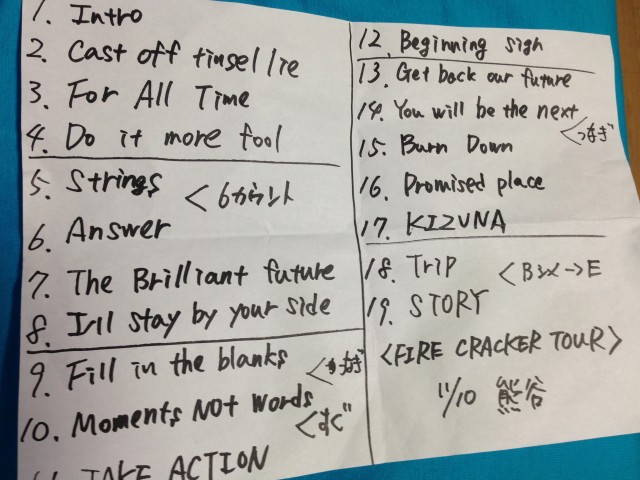 1. Intro
2. Cast off tinsel lie
3. For All Time
4. Do it more fool
5. Strings
<6カウント
6. Answer
7. The Brilliant future
8. I'll stay by your side
9. Fill in the blanks
<つなぎ
10. Moments Not words
<すぐ
11. TAKE ACTION
12. Beginning sigh
13. Get back our future
14. You will be the next
<つなぎ
15. Burn Down
16. Promised place
17. KIZUNA
18. Trip
<Bシメ→E
19. STORY
<FIRE CRACKER TOUR>
11/10 熊谷